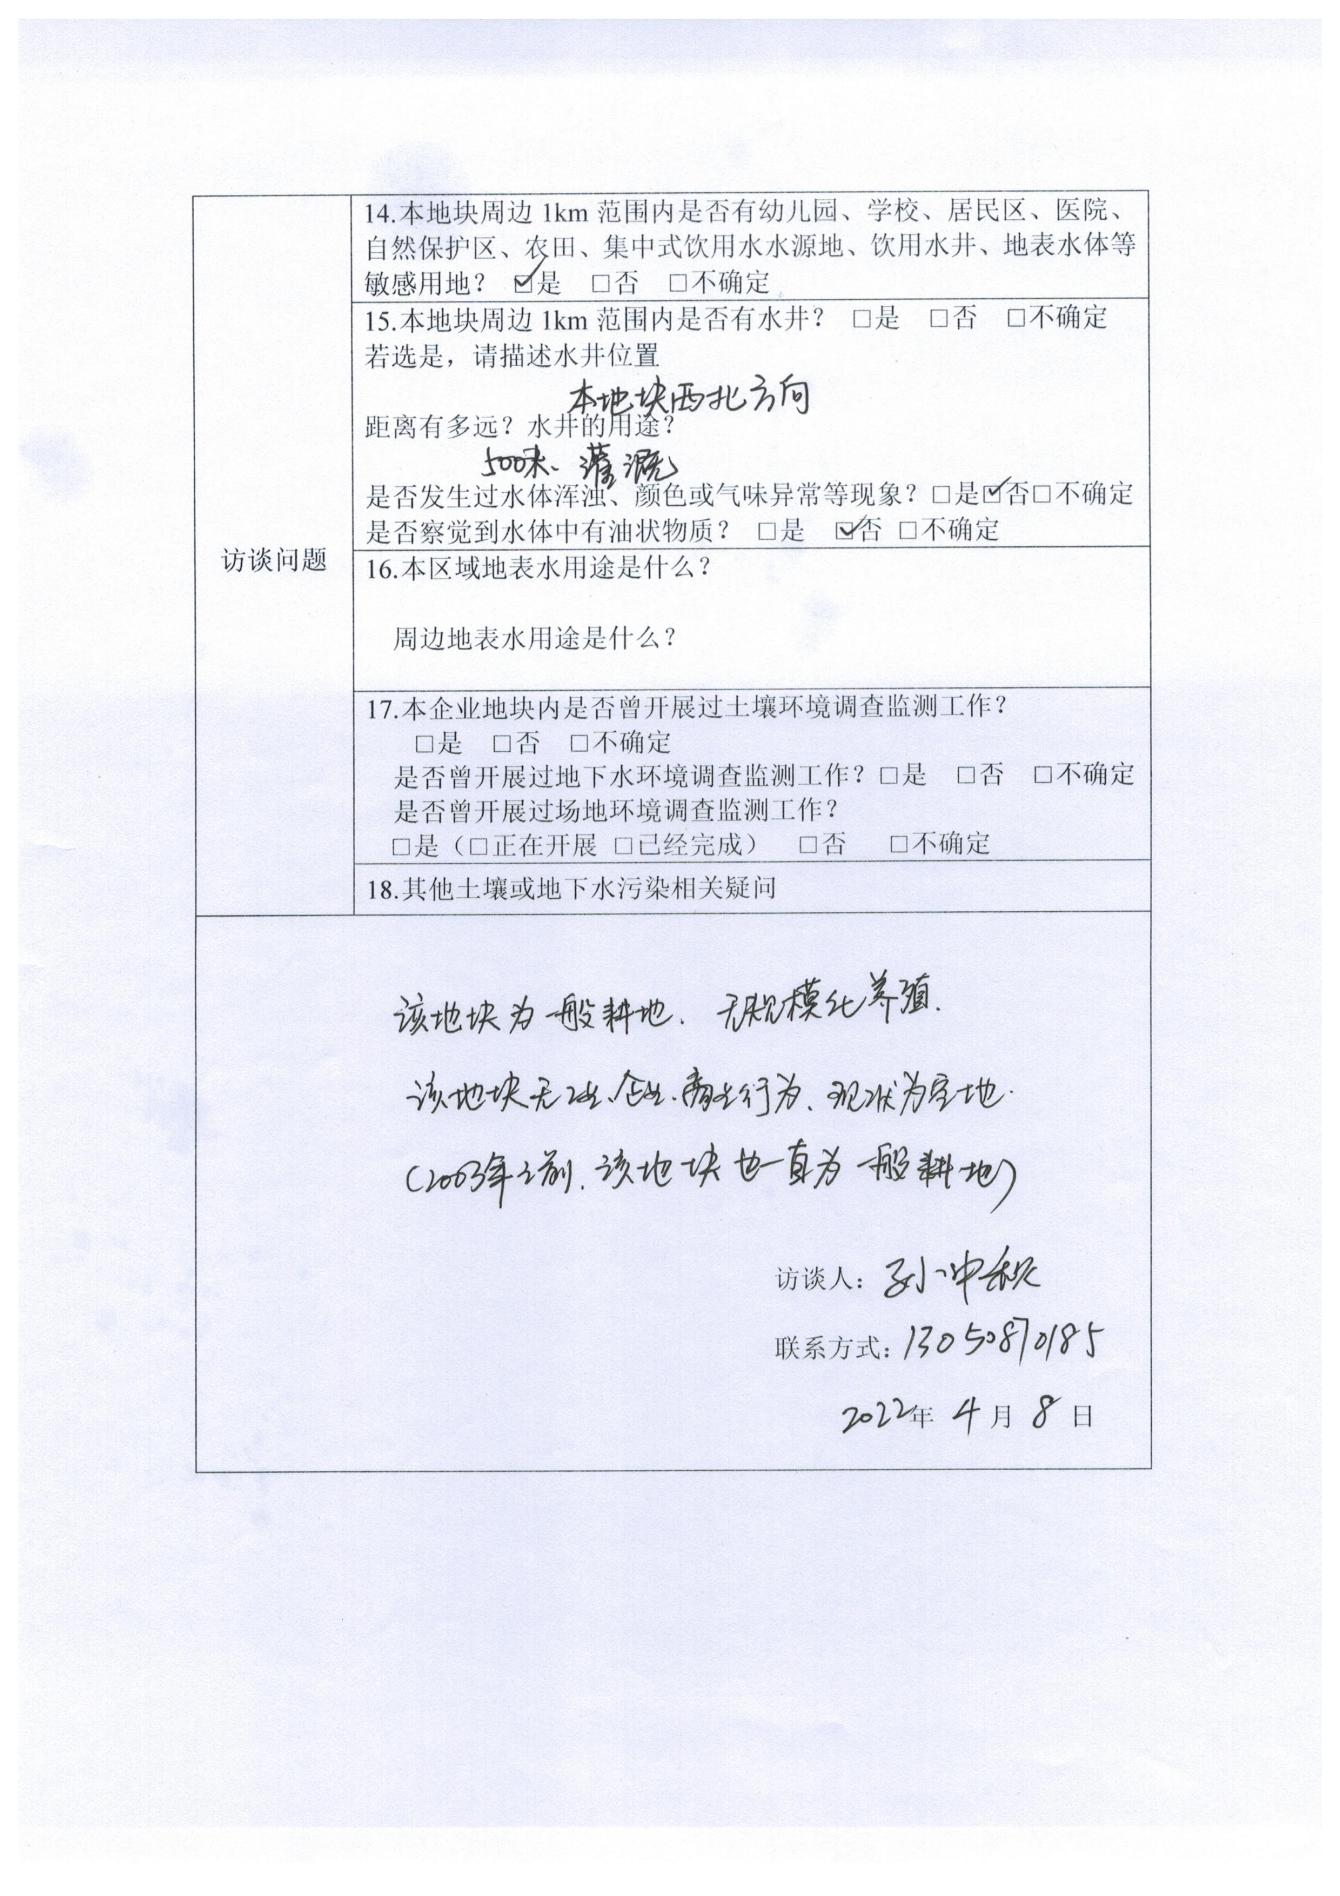 14.本地块周边 1km 范围内是否有幼儿园、学校、居民区、医院、
自然保护区、农田、集中式饮用水水源地、饮用水井、地表水体等
敏感用地？ ☑是 □否 □不确定
15.本地块周边 1km 范围内是否有水井？ □是 □否 □不确定
若选是，请描述水井位置
本地块西北方向
距离有多远？水井的用途？
500米、灌溉
是否发生过水体浑浊、颜色或气味异常等现象？□是☑否□不确定
是否察觉到水体中有油状物质？ □是 ☑否 □不确定
访谈问题
16.本区域地表水用途是什么？
周边地表水用途是什么？
17.本企业地块内是否曾开展过土壤环境调查监测工作？
□是 □否 □不确定
是否曾开展过地下水环境调查监测工作？□是 □否 □不确定
是否曾开展过场地环境调查监测工作？
□是（□正在开展 □已经完成） □否 □不确定
18.其他土壤或地下水污染相关疑问
该地块为一般耕地、无规模化养殖.
该地块无 企业、 行为、现状为空地.
(2003年之前、该地块也一直为一般耕地)
访谈人：孙中秋
联系方式：13050870185
2022年 4 月 8 日